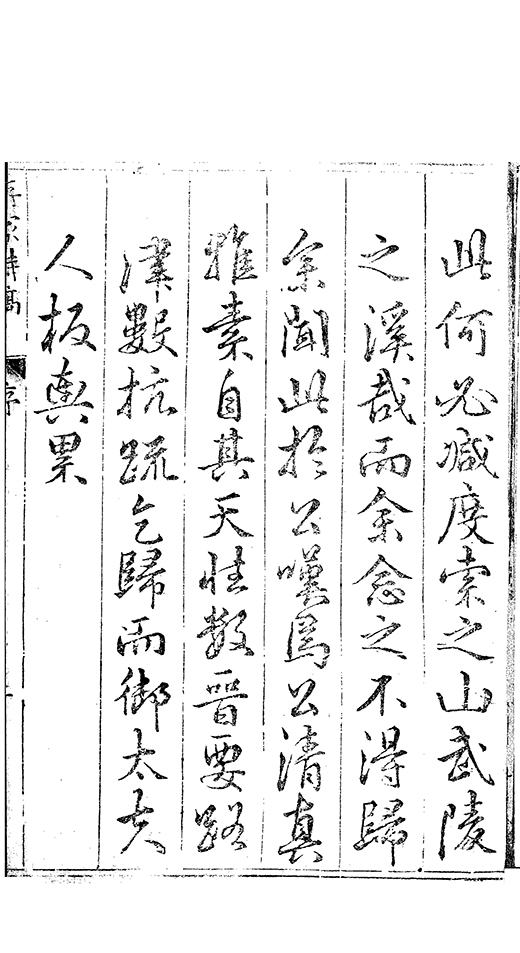 此何必減度索之山武陵
之溪哉而余念之不得歸
余聞此於公嘆焉公清真
雅素自其天性数晋要路
津數抗疏乞歸而御太夫
人板輿累
序